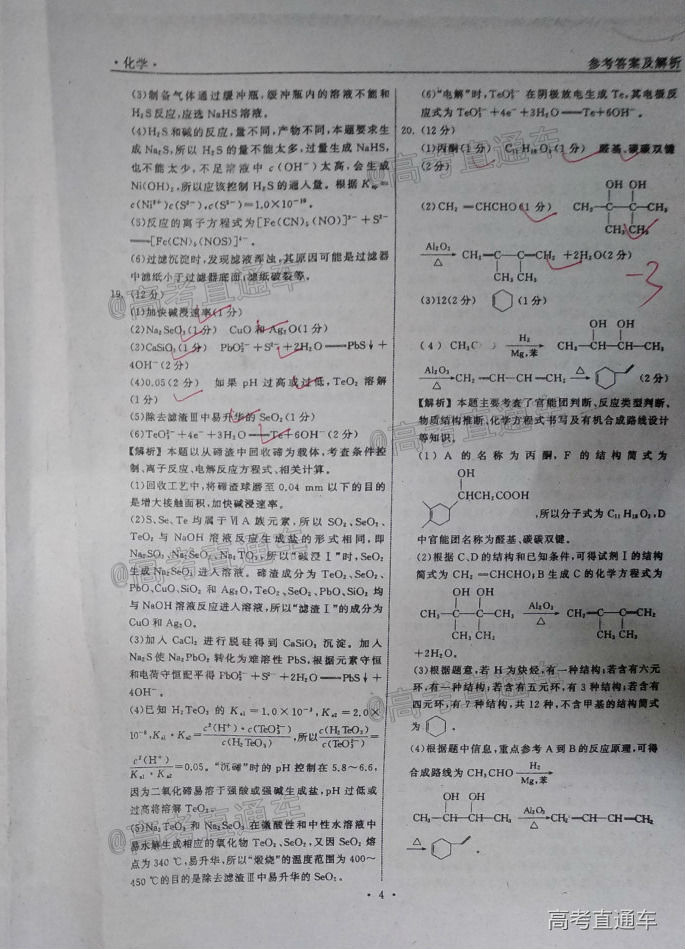 ·化学·
参考答案及解析
(3)制备气体通过缓冲瓶,缓冲瓶内的溶液不能和
H₂S反应,应选NaHS溶液。
(4)H₂S和碱的反应,量不同,产物不同,本题要求生
成Na₂S,所以H₂S的量不能太多,过量生成NaHS,
也不能太少,不足溶液中c(OH⁻)太高,会生成
Ni(OH)₂,所以应该控制H₂S的通入量。根据Ksp=
c(Ni²⁺)c(S²⁻),c(S²⁻)=1.0×10⁻¹⁰。
(5)反应的离子方程式为[Fe(CN)₅(NO)]²⁻+S²⁻
══[Fe(CN)₅(NOS)]⁴⁻。
(6)过滤沉淀时,发现滤液浑浊,其原因可能是过滤器
中滤纸小于过滤器底面,滤纸破裂等。
19.(12分)
(1)加快碱浸速率(1分)
(2)Na₂SeO₃(1分) CuO和Ag₂O(1分)
(3)CaSiO₃(1分) PbO₂²⁻+S²⁻+2H₂O══PbS↓+
4OH⁻(2分)
(4)0.05(2分) 如果pH过高或过低,TeO₂溶解
(1分)
(5)除去滤渣Ⅲ中易升华的SeO₂(1分)
(6)TeO₃²⁻+4e⁻+3H₂O══Te+6OH⁻(2分)
【解析】本题以从碲渣中回收碲为载体,考查条件控
制、离子反应、电解反应方程式、相关计算。
(1)回收工艺中,将碲渣球磨至0.04 mm以下的目的
是增大接触面积,加快碱浸速率。
(2)S、Se、Te均属于ⅥA族元素,所以SO₂、SeO₂、
TeO₂与NaOH溶液反应生成盐的形式相同,即
Na₂SO₃、Na₂SeO₃、Na₂TO₃,所以“碱浸Ⅰ”时,SeO₂
生成Na₂SeO₃进入溶液。碲渣成分为TeO₂、SeO₂、
PbO、CuO、SiO₂和Ag₂O,TeO₂、SeO₂、PbO、SiO₂均
与NaOH溶液反应进入溶液,所以“滤渣Ⅰ”的成分为
CuO和Ag₂O。
(3)加入CaCl₂进行脱硅得到CaSiO₃沉淀。加入
Na₂S使Na₂PbO₂转化为难溶性PbS,根据元素守恒
和电荷守恒配平得PbO₂²⁻+S²⁻+2H₂O══PbS↓+
4OH⁻。
(4)已知H₂TeO₃的Ka1=1.0×10⁻³,Ka2=2.0×
10⁻⁸,Ka1·Ka2=c²(H⁺)·c(TeO₃²⁻)/c(H₂TeO₃),所以c(H₂TeO₃)/c(TeO₃²⁻)=
c²(H⁺)/Ka1·Ka2=0.05。“沉碲”时的pH控制在5.8~6.6,
因为二氧化碲易溶于强酸或强碱生成盐,pH过低或
过高将溶解TeO₂。
(5)Na₂TeO₃和Na₂SeO₃在微酸性和中性水溶液中
易水解生成相应的氧化物TeO₂、SeO₂,又因SeO₂熔
点为340℃,易升华,所以“煅烧”的温度范围为400~
450℃的目的是除去滤渣Ⅲ中易升华的SeO₂。
(6)“电解”时,TeO₃²⁻在阴极放电生成Te,其电极反
应式为TeO₃²⁻+4e⁻+3H₂O══Te+6OH⁻。
20.(12分)
(1)丙酮(1分) C₁₁H₁₈O₃(1分) 醛基、碳碳双键
(2分)
OH OH
(2)CH₂═CHCHO(1分) CH₃—C—C—CH₃
CH₃ CH₃
Al₂O₃ △ CH₂═C—C═CH₂+2H₂O(2分)
CH₃ CH₃
(3)12(2分) (1分)
OH OH
(4)CH₃C H₂ Mg,苯 CH₃—CH—CH—CH₃
Al₂O₃ △ CH₂═CH—CH═CH₂ △ (2分)
【解析】本题主要考查了官能团判断、反应类型判断、
物质结构推断、化学方程式书写及有机合成路线设计
等知识。
(1)A的名称为丙酮,F的结构简式为
OH
CHCH₂COOH
,所以分子式为C₁₁H₁₈O₃,D
中官能团名称为醛基、碳碳双键。
(2)根据C、D的结构和已知条件,可得试剂Ⅰ的结构
简式为CH₂═CHCHO;B生成C的化学方程式为
OH OH
CH₃—C—C—CH₃ Al₂O₃ △ CH₂═C—C═CH₂
CH₃ CH₃ CH₃ CH₃
+2H₂O。
(3)根据题意,若H为炔烃,有一种结构;若含有六元
环,有一种结构;若含有五元环,有3种结构;若含有
四元环,有7种结构,共12种,不含甲基的结构简式
为 。
(4)根据题中信息,重点参考A到B的反应原理,可得
合成路线为CH₃CHO H₂ Mg,苯
OH OH
CH₃—CH—CH—CH₃ Al₂O₃ △ CH₂═CH—CH═CH₂
△ 。
-3
·4·
@高考直通车
@高考直通车
@高考直通车
@高考直通车
@高考直通车
@高考直通车
高考直通车